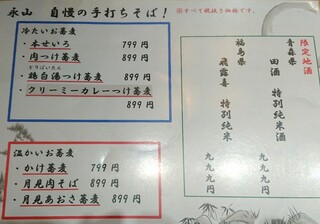 永山　自慢の手打ちそば！
※すべて税抜き価格です。
冷たいお蕎麦
・本せいろ　799円
・肉つけ蕎麦　899円
とりぱいたん
・鶏白湯つけ蕎麦　899円
・クリーミーカレーつけ蕎麦　899円
温かいお蕎麦
・かけ蕎麦　799円
・月見肉そば　899円
・月見あおさ蕎麦　899円
限定地酒
青森県
田酒　特別純米酒　九九九円
福島県
飛露喜　特別純米　九九九円